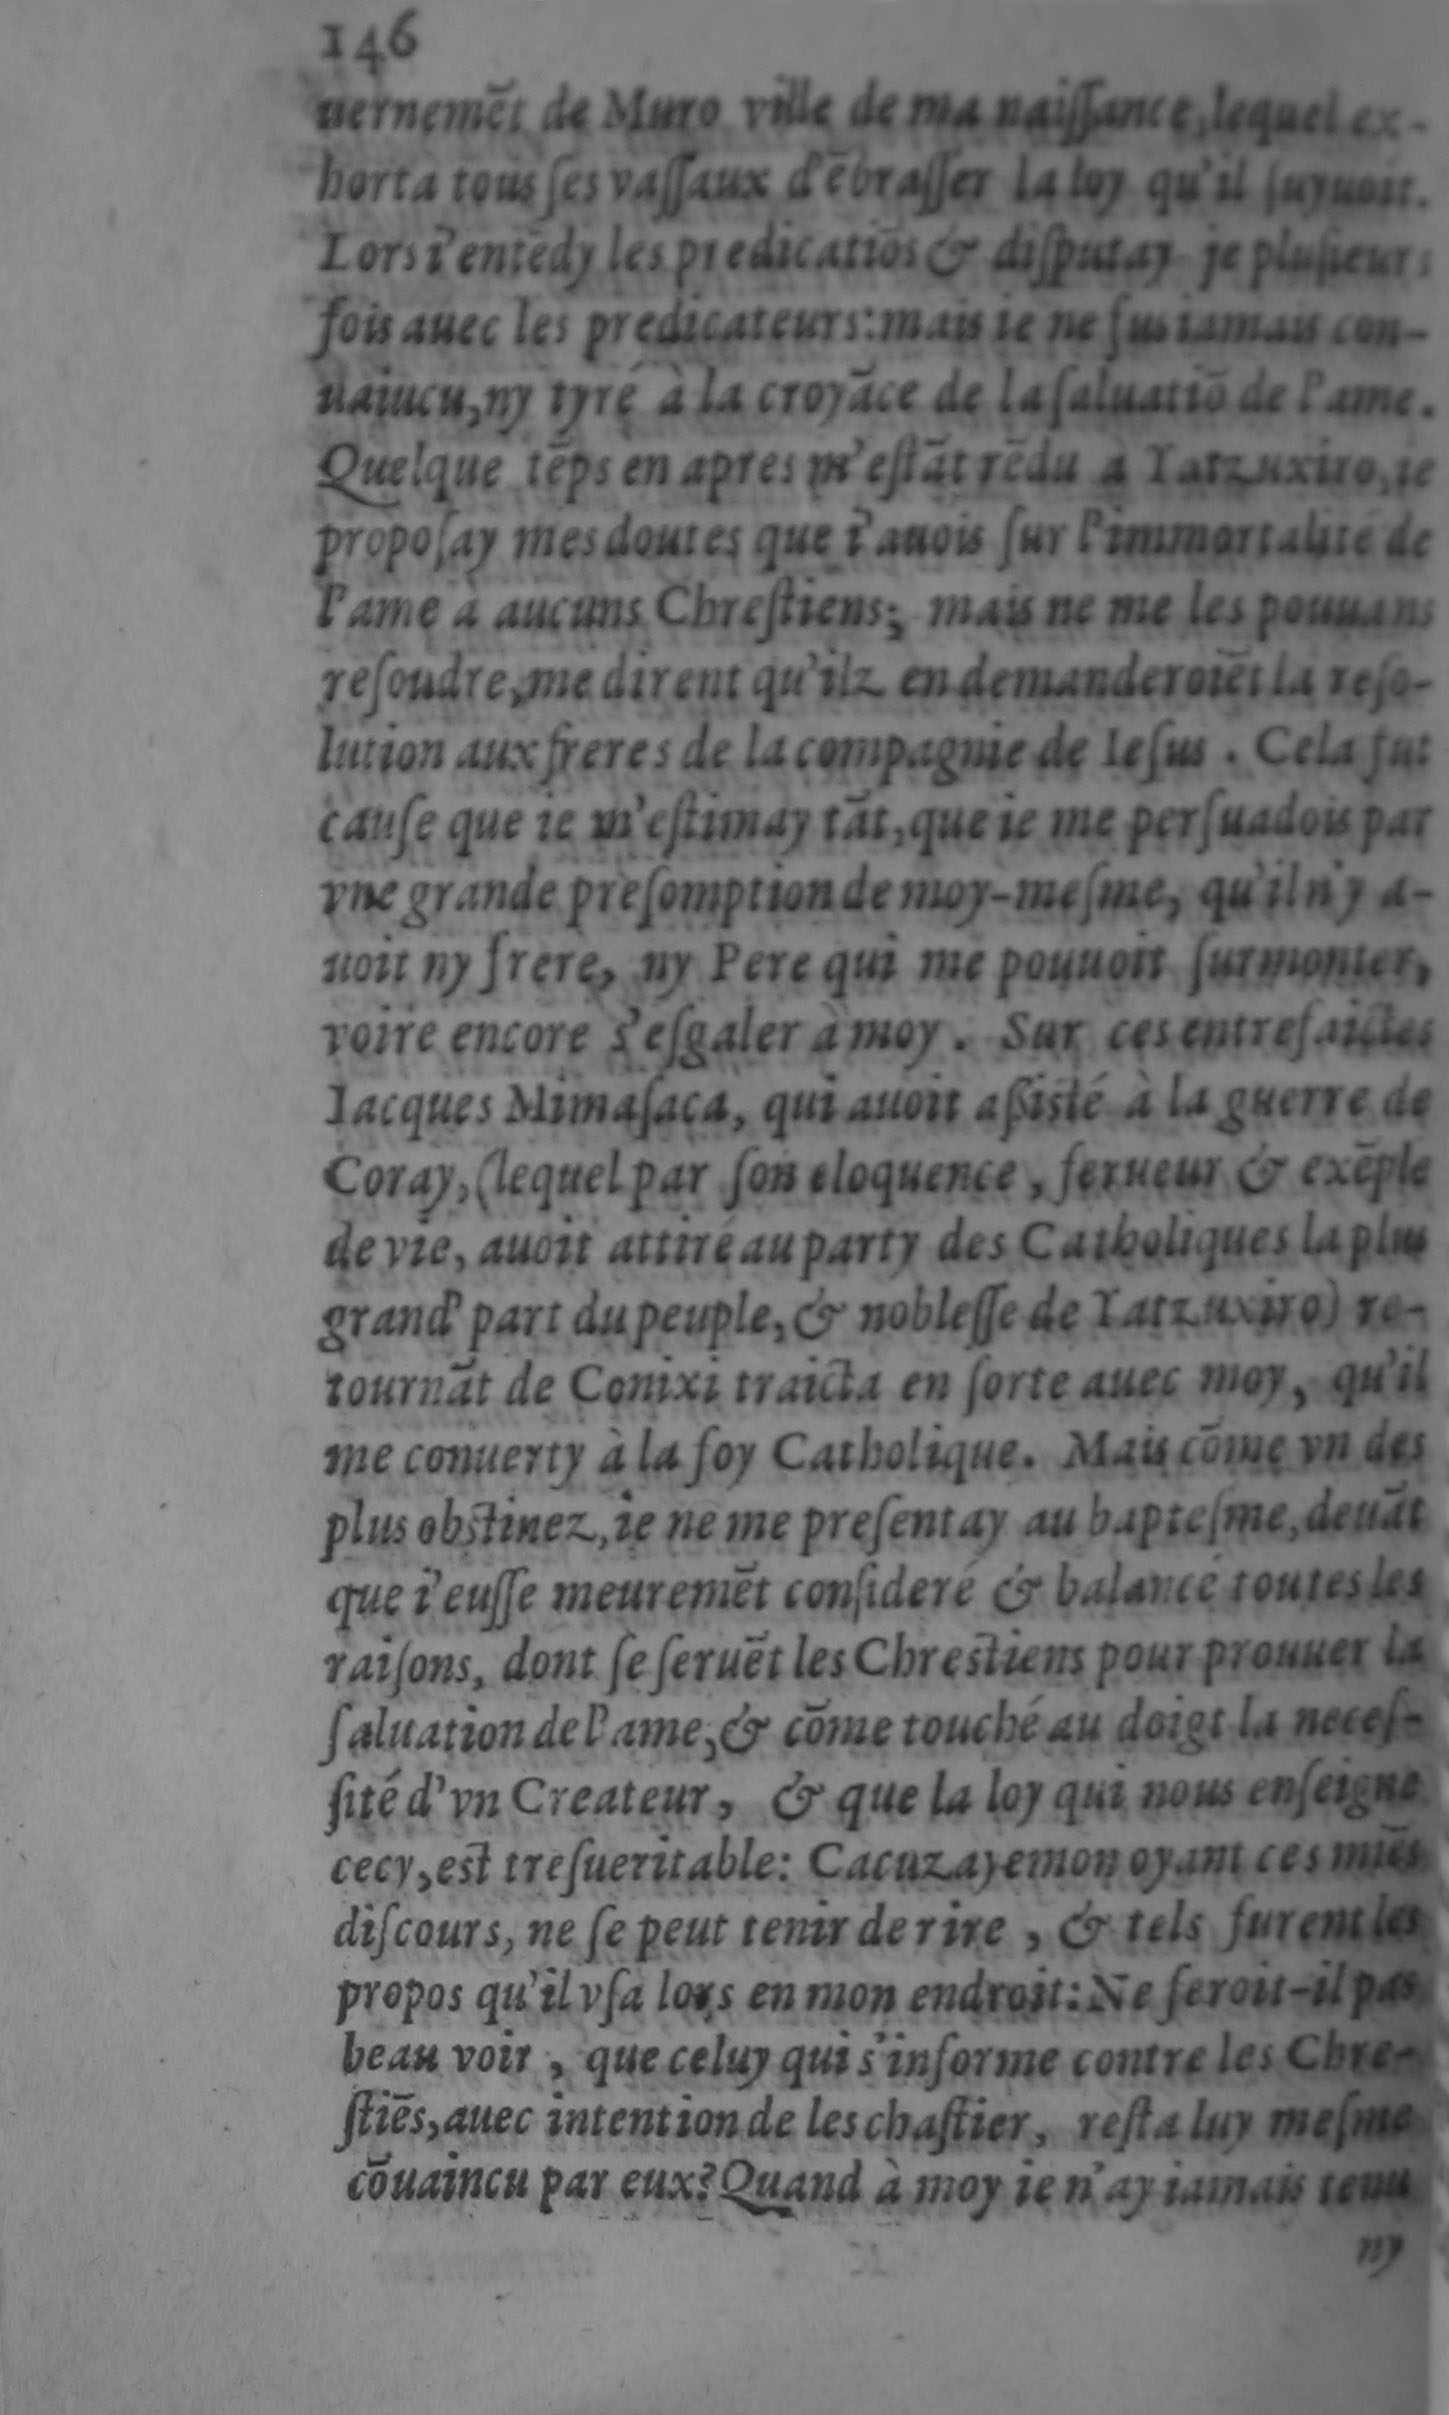 146
uernemẽt de Muro ville de ma naiſſance, lequel ex-
horta tous ſes vaſſaux d'ẽbraſſer la loy qu'il ſuyuoit.
Lors i'entẽdy les predicatiõs & diſputay je pluſieurs
fois auec les predicateurs: mais ie ne fus iamais con-
uaiucu, ny tyré à la croyãce de la ſaluatiõ de l'ame.
Quelque tẽps en apres m'eſtãt rẽdu à Yatzuxiro, ie
propoſay mes doutes que i'auois ſur l'immortalité de
l'ame à aucuns Chreſtiens; mais ne me les pouuans
reſoudre, me dirent qu'ilz en demanderoiẽt la reſo-
lution aux freres de la compagnie de Ieſus. Cela fut
cauſe que ie m'eſtimay tãt, que ie me perſuadois par
vne grande preſomption de moy-meſme, qu'il n'y a-
uoit ny frere, ny Pere qui me pouuoit ſurmonter,
voire encore s'eſgaler à moy. Sur ces entrefaictes
Iacques Mimaſaca, qui auoit aßiſté à la guerre de
Coray, (lequel par ſon eloquence, ferueur & exẽple
de vie, auoit attiré au party des Catholiques la plus
grand' part du peuple, & nobleſſe de Yatzuxiro) re-
tournãt de Conixi traicta en ſorte auec moy, qu'il
me conuerty à la foy Catholique. Mais cõme vn des
plus obſtinez, ie ne me preſentay au bapteſme, deuãt
que i'euſſe meuremẽt conſideré & balancé toutes les
raiſons, dont ſe ſeruẽt les Chreſtiens pour prouuer la
ſaluation de l'ame, & cõme touché au doigt la neceſ-
ſité d'vn Createur, & que la loy qui nous enſeigne
cecy, eſt treſueritable: Cacuzayemon oyant ces miẽs
diſcours, ne ſe peut tenir de rire, & tels furent les
propos qu'il vſa lors en mon endroit: Ne ſeroit-il pas
beau voir, que celuy qui s'informe contre les Chre-
ſtiẽs, auec intention de les chaſtier, reſta luy meſme
cõuaincu par eux? Quand à moy ie n'ay iamais tenu
ny